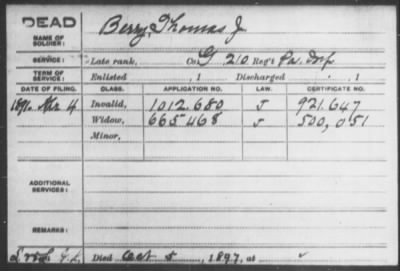 DEAD
NAME OF SOLDIER: Berry, Thomas J
SERVICE: Late rank, Co. G 210 Reg't Pa. Inf.
TERM OF SERVICE: Enlisted , 1 Discharged , 1
DATE OF FILING. CLASS. APPLICATION NO. LAW. CERTIFICATE NO.
1891. 4 Invalid, 1012.680 J 921.647
Widow, 665468 J 500,051
Minor,
ADDITIONAL SERVICES:
REMARKS:
Died Oct 5, 1897, at